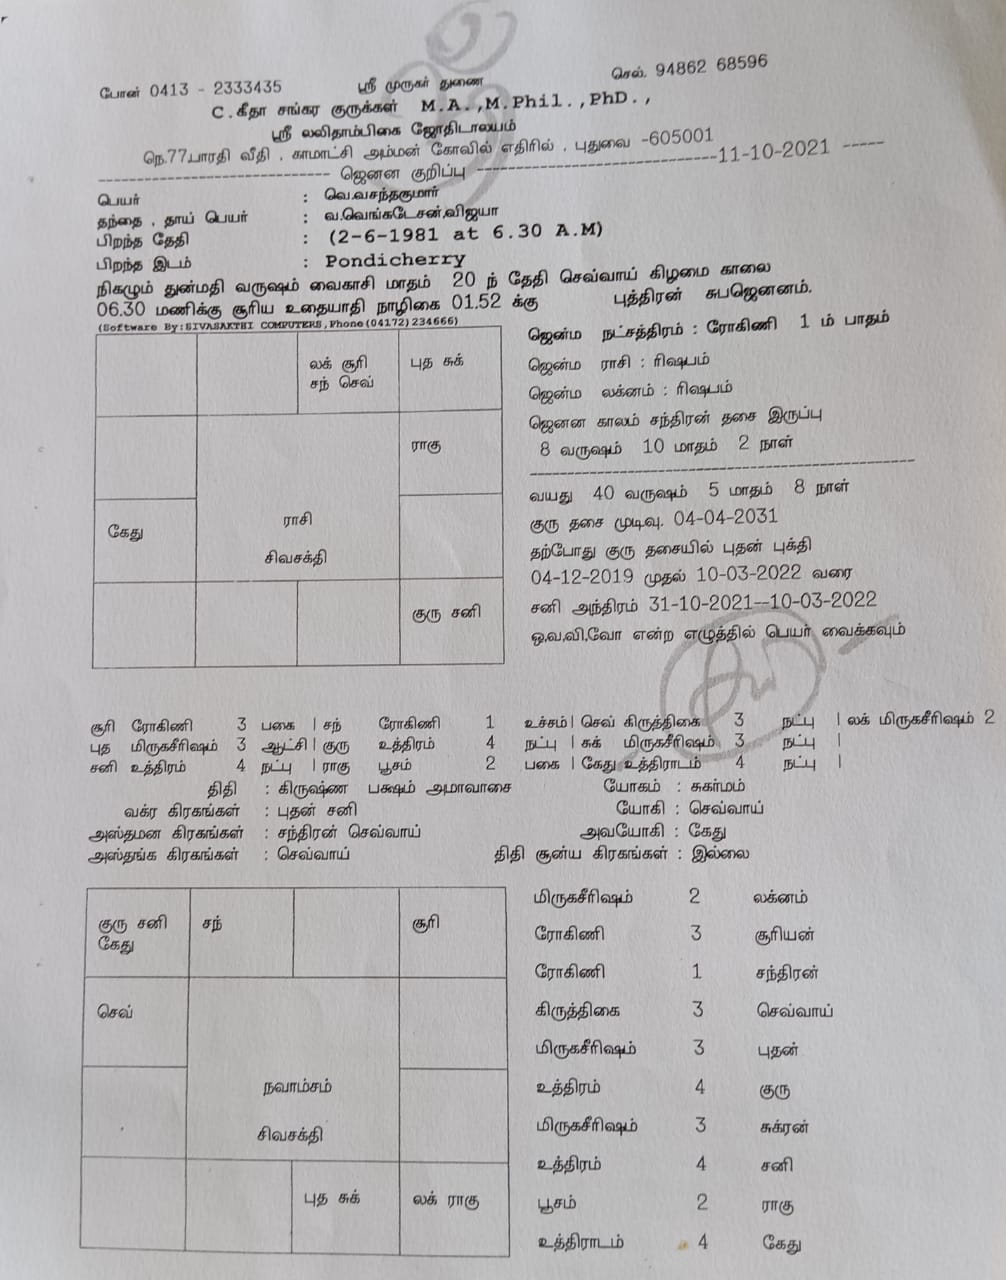 ஸ்ரீ
போன் 0413 - 2333435 ஸ்ரீ முருகர் துணை செல். 94862 68596
C.கீதா சங்கர குருக்கள் M.A.,M.Phil.,PhD.,
ஸ்ரீ லலிதாம்பிகை ஜோதிடாலயம்
நெ.77பாரதி வீதி , காமாட்சி அம்மன் கோவில் எதிரில் , புதுவை -605001
------------------------------ ஜெனன குறிப்பு -------------------------------11-10-2021 -----
பெயர் : வெ.வசந்தகுமார்
தந்தை , தாய் பெயர் : வ.வெங்கடேசன்,விஜயா
பிறந்த தேதி : (2-6-1981 at 6.30 A.M)
பிறந்த இடம் : Pondicherry
நிகழும் துன்மதி வருஷம் வைகாசி மாதம் 20 ந் தேதி செவ்வாய் கிழமை காலை
06.30 மணிக்கு சூரிய உதையாதி நாழிகை 01.52 க்கு புத்திரன் சுபஜெனனம்.
(Software By:SIVASAKTHI COMPUTERS,Phone(04172)234666)
லக் சூரி
சந் செவ்
புத சுக்
ராகு
கேது
ராசி
சிவசக்தி
குரு சனி
ஜென்ம நட்சத்திரம் : ரோகிணி 1 ம் பாதம்
ஜென்ம ராசி : ரிஷபம்
ஜென்ம லக்னம் : ரிஷபம்
ஜெனன காலம் சந்திரன் தசை இருப்பு
8 வருஷம் 10 மாதம் 2 நாள்
வயது 40 வருஷம் 5 மாதம் 8 நாள்
குரு தசை முடிவு. 04-04-2031
தற்போது குரு தசையில் புதன் புக்தி
04-12-2019 முதல் 10-03-2022 வரை
சனி அந்திரம் 31-10-2021--10-03-2022
ஒ,வ,வி,வோ என்ற எழுத்தில் பெயர் வைக்கவும்
சூரி ரோகிணி 3 பகை | சந் ரோகிணி 1 உச்சம்| செவ் கிருத்திகை 3 நட்பு | லக் மிருகசீரிஷம் 2
புத மிருகசீரிஷம் 3 ஆட்சி| குரு உத்திரம் 4 நட்பு | சுக் மிருகசீரிஷம் 3 நட்பு |
சனி உத்திரம் 4 நட்பு | ராகு பூசம் 2 பகை | கேது உத்திராடம் 4 நட்பு |
திதி : கிருஷ்ண பக்ஷம் அமாவாசை யோகம் : சுகர்மம்
வக்ர கிரகங்கள் : புதன் சனி யோகி : செவ்வாய்
அஸ்தமன கிரகங்கள் : சந்திரன் செவ்வாய் அவயோகி : கேது
அஸ்தங்க கிரகங்கள் : செவ்வாய் திதி சூன்ய கிரகங்கள் : இல்லை
குரு சனி
கேது
சந்
சூரி
செவ்
நவாம்சம்
சிவசக்தி
புத சுக்
லக் ராகு
மிருகசீரிஷம் 2 லக்னம்
ரோகிணி 3 சூரியன்
ரோகிணி 1 சந்திரன்
கிருத்திகை 3 செவ்வாய்
மிருகசீரிஷம் 3 புதன்
உத்திரம் 4 குரு
மிருகசீரிஷம் 3 சுக்ரன்
உத்திரம் 4 சனி
பூசம் 2 ராகு
உத்திராடம் 4 கேது